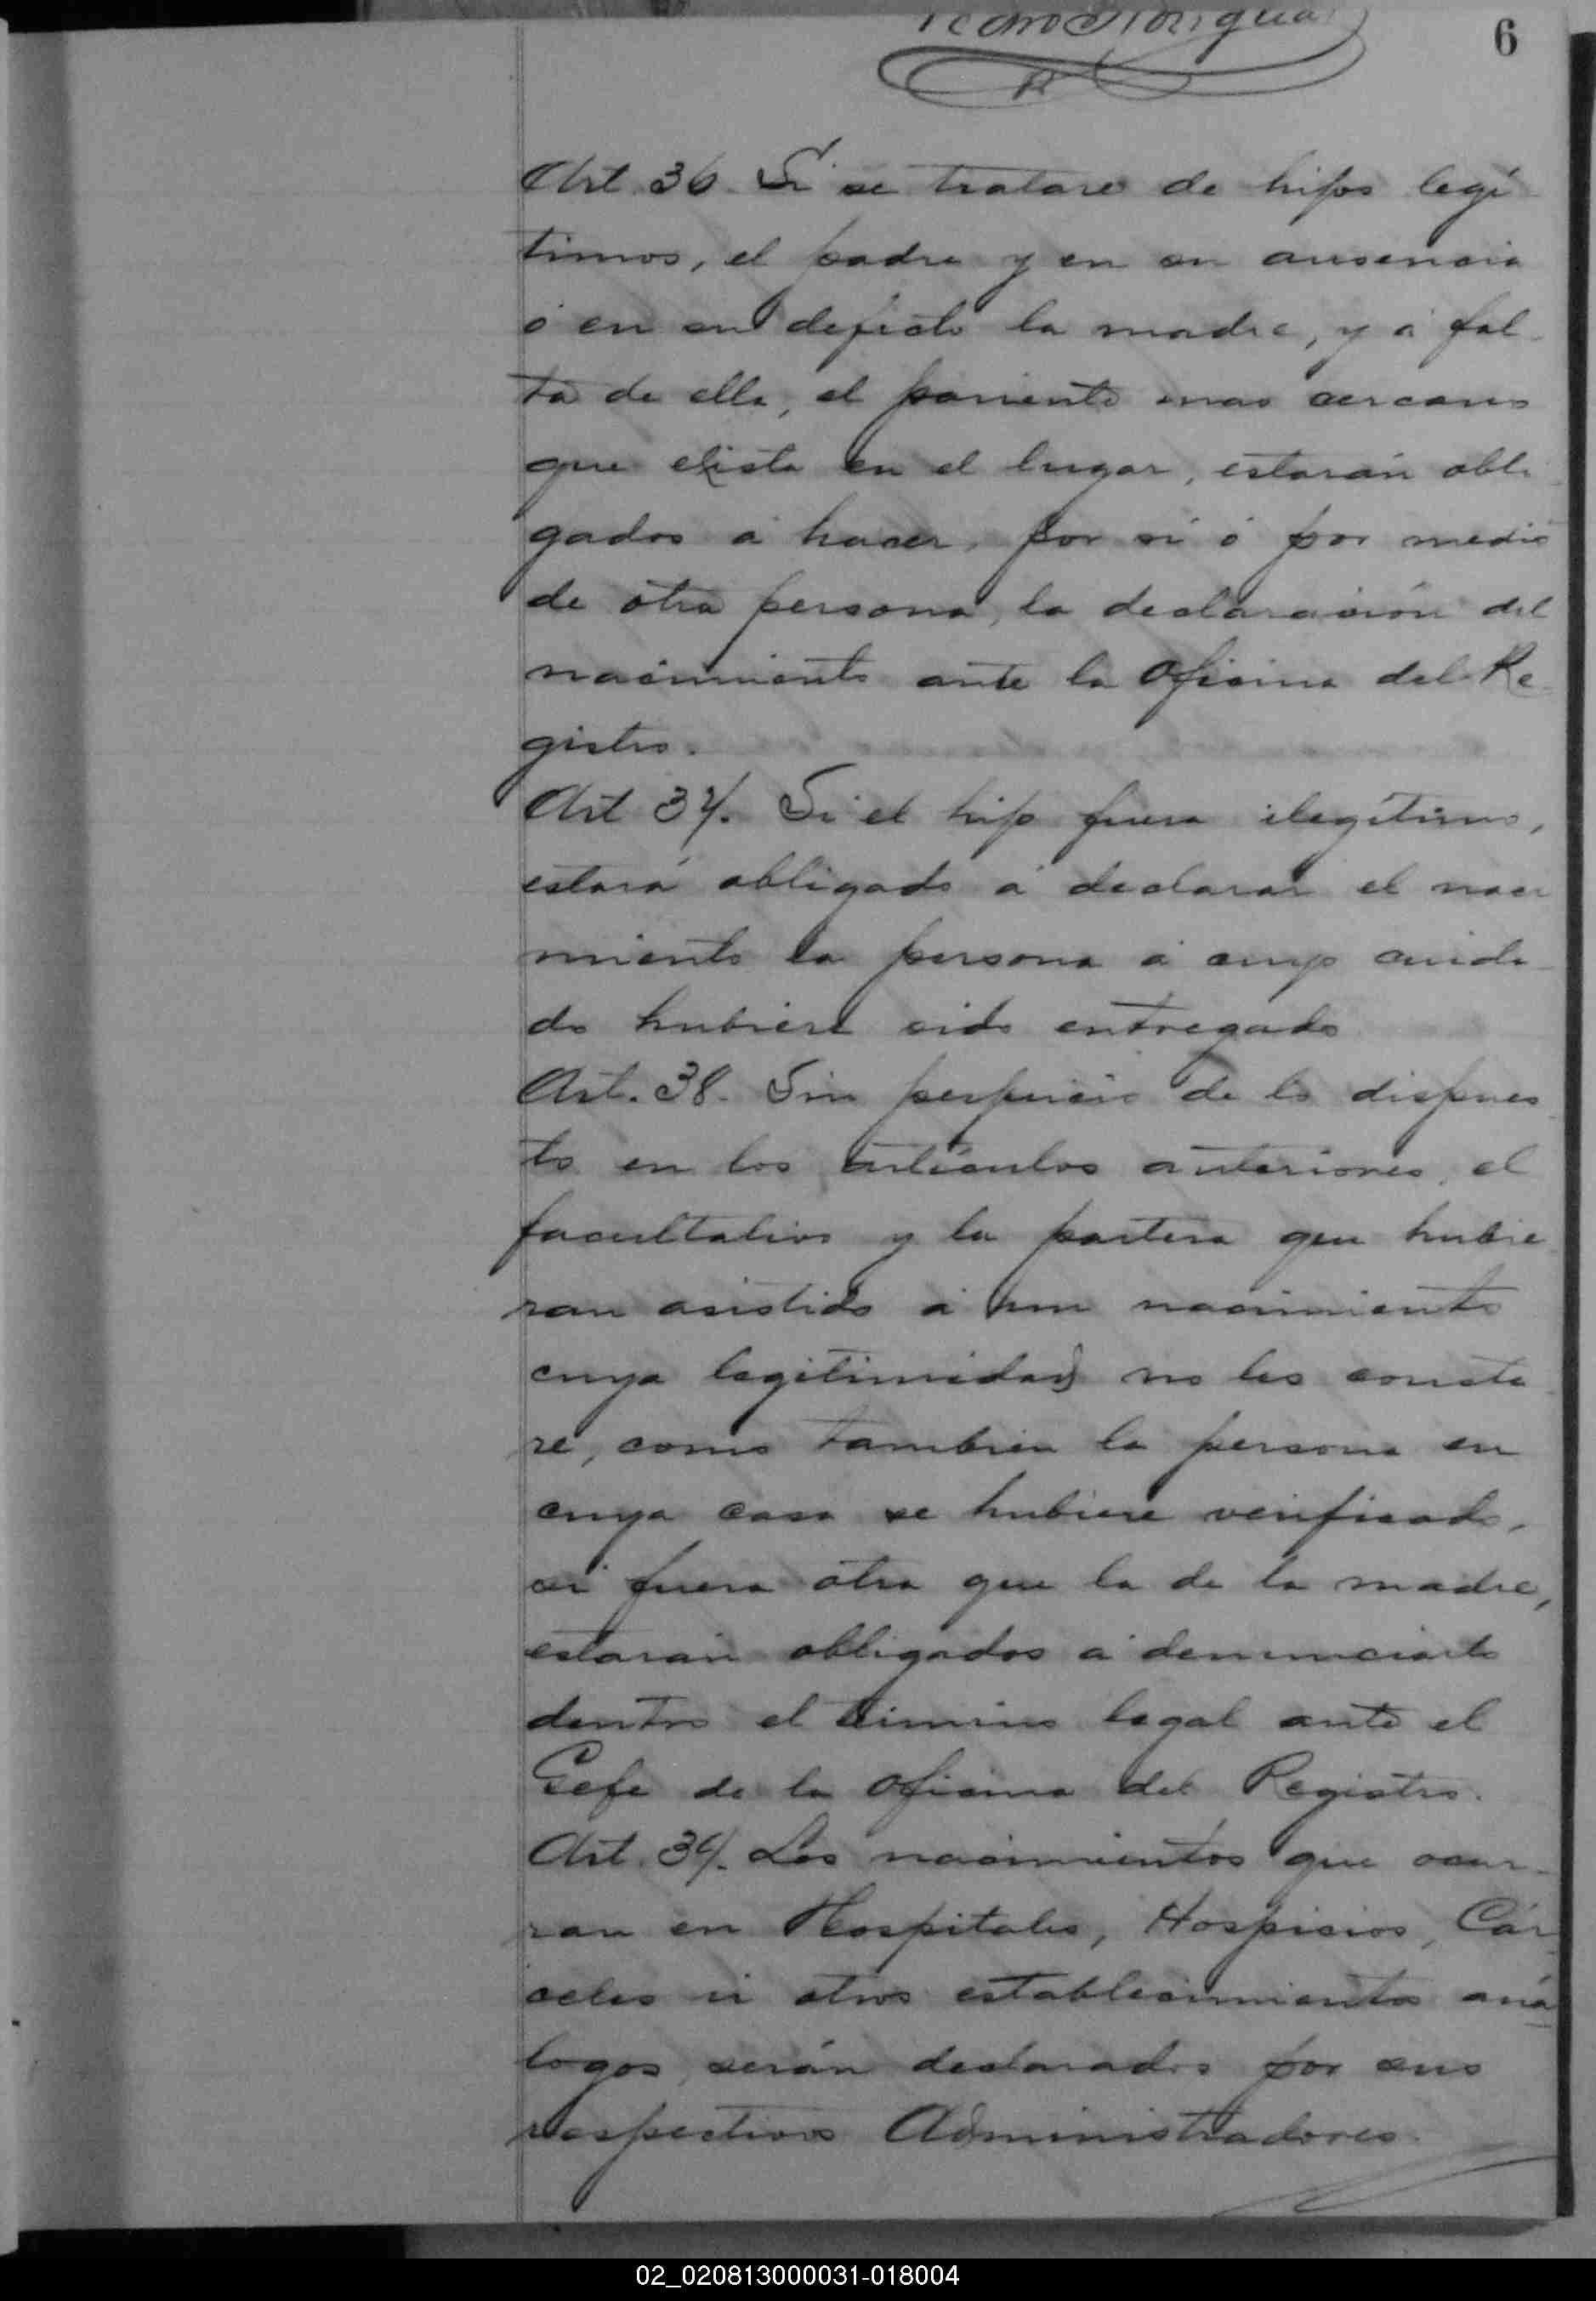 6
Art 36. Si se tratare de hijos legí
timos, el padre y en su ausencia
ó en su defecto la madre, y á fal-
ta de ella, el pariente mas cercano
que exista en el lugar, estarán obli
gados á hacer, por sí ó por medio
de otra persona, la declaración del
nacimiento ante la Oficina del Re-
gistro.
Art 37. Si el hijo fuera ilegítimo,
estará obligado á declarar el naci
miento la persona á cuyo cuida-
do hubiere sido entregado
Art. 38. Sin perjuicio de lo dispues
to en los artículos anteriores, el
facultativo y la partera que hubie
ran asistido á un nacimiento
cuya legitimidad no les consta
re, como tambien la persona en
cuya casa se hubiere verificado,
si fuera otra que la de la madre,
estarán obligados á denunciarlo
dentro el término legal ante el
Gefe de la Oficina del Registro.
Art. 39. Los nacimientos que ocur-
ran en Hospitales, Hospicios, Cár
celes ú otros establecimientos aná
logos, serán declarados por sus
respectivos Administradores.
02_020813000031-018004